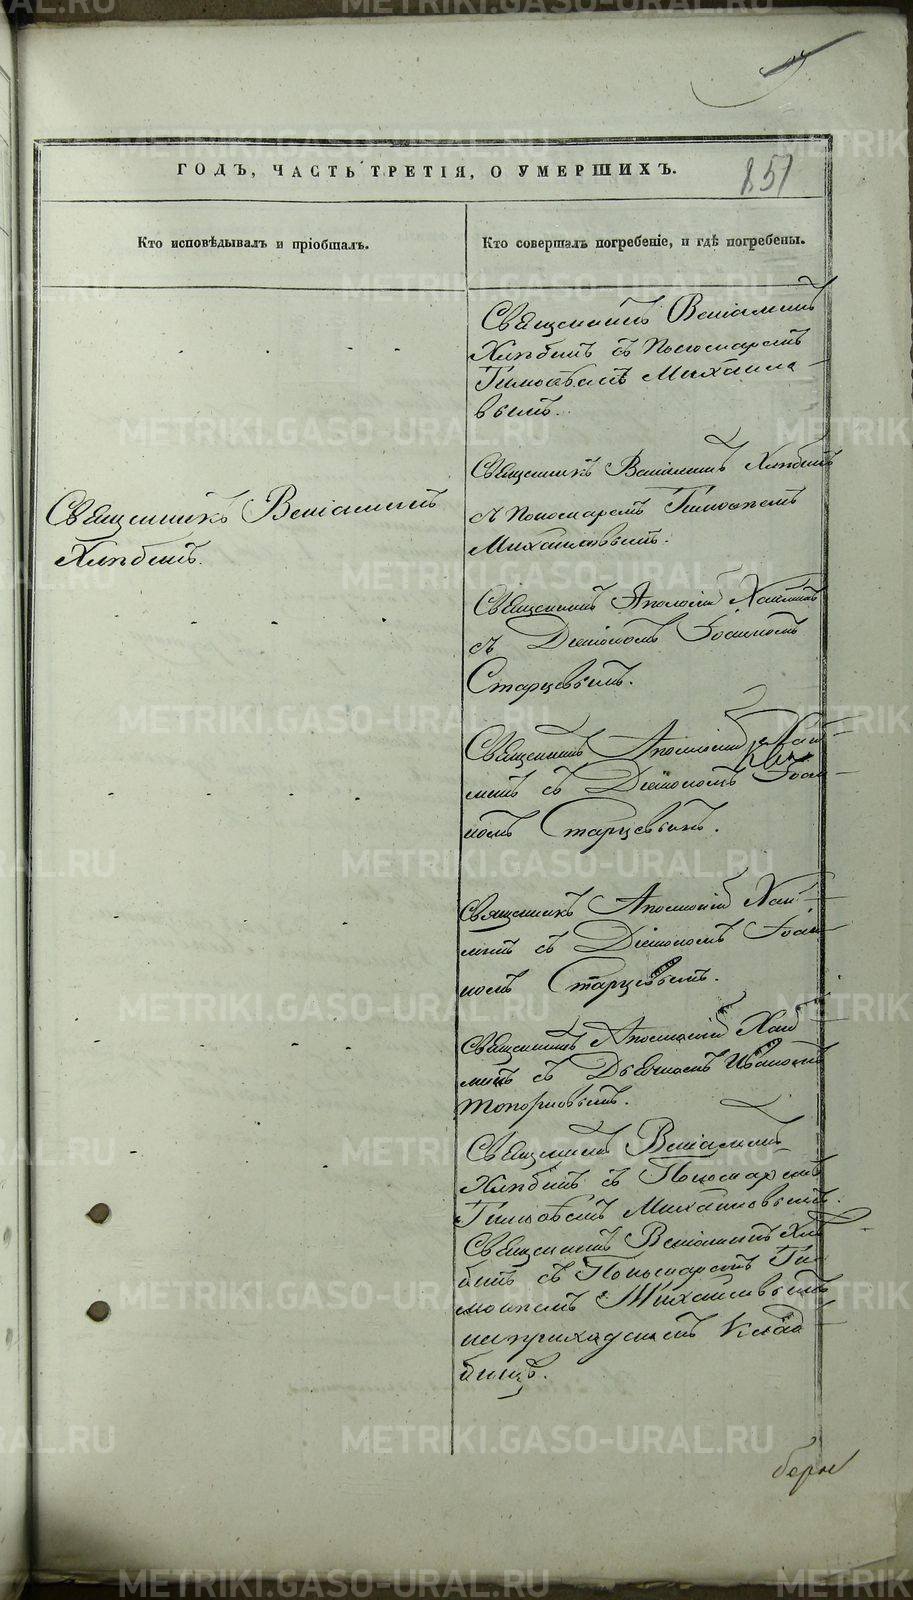 ГОДЪ, ЧАСТЬ ТРЕТІЯ, О УМЕРШИХЪ.
851
Кто исповѣдывалъ и пріобщалъ.
Кто совершалъ погребеніе, и гдѣ погребены.
Священникъ Веніаминъ
Хлѣбинъ съ Пономаремъ
Тимофеемъ Михаила-
вымъ.
Священникъ Веніаминъ
Хлѣбинъ.
Священникъ Веніаминъ Хлѣбинъ
съ Пономаремъ Тимофеемъ
Михаиловымъ.
Священникъ
съ Діакономъ Іоанномъ
Старцевымъ.
Священникъ
съ Діакономъ Іоан-
номъ Старцевымъ.
Священникъ
съ Діакономъ Іоан-
номъ Старцевымъ.
Священникъ
съ Дьячкомъ Иваномъ
Топорковымъ.
Священникъ Веніаминъ
Хлѣбинъ съ Пономаремъ
Тимофеемъ Михаиловымъ.
Священникъ Веніаминъ Хлѣ-
бинъ съ Пономаремъ Ти-
мофеемъ Михаиловымъ
на приходскомъ клад-
бищѣ.
METRIKI.GASO-URAL.RU